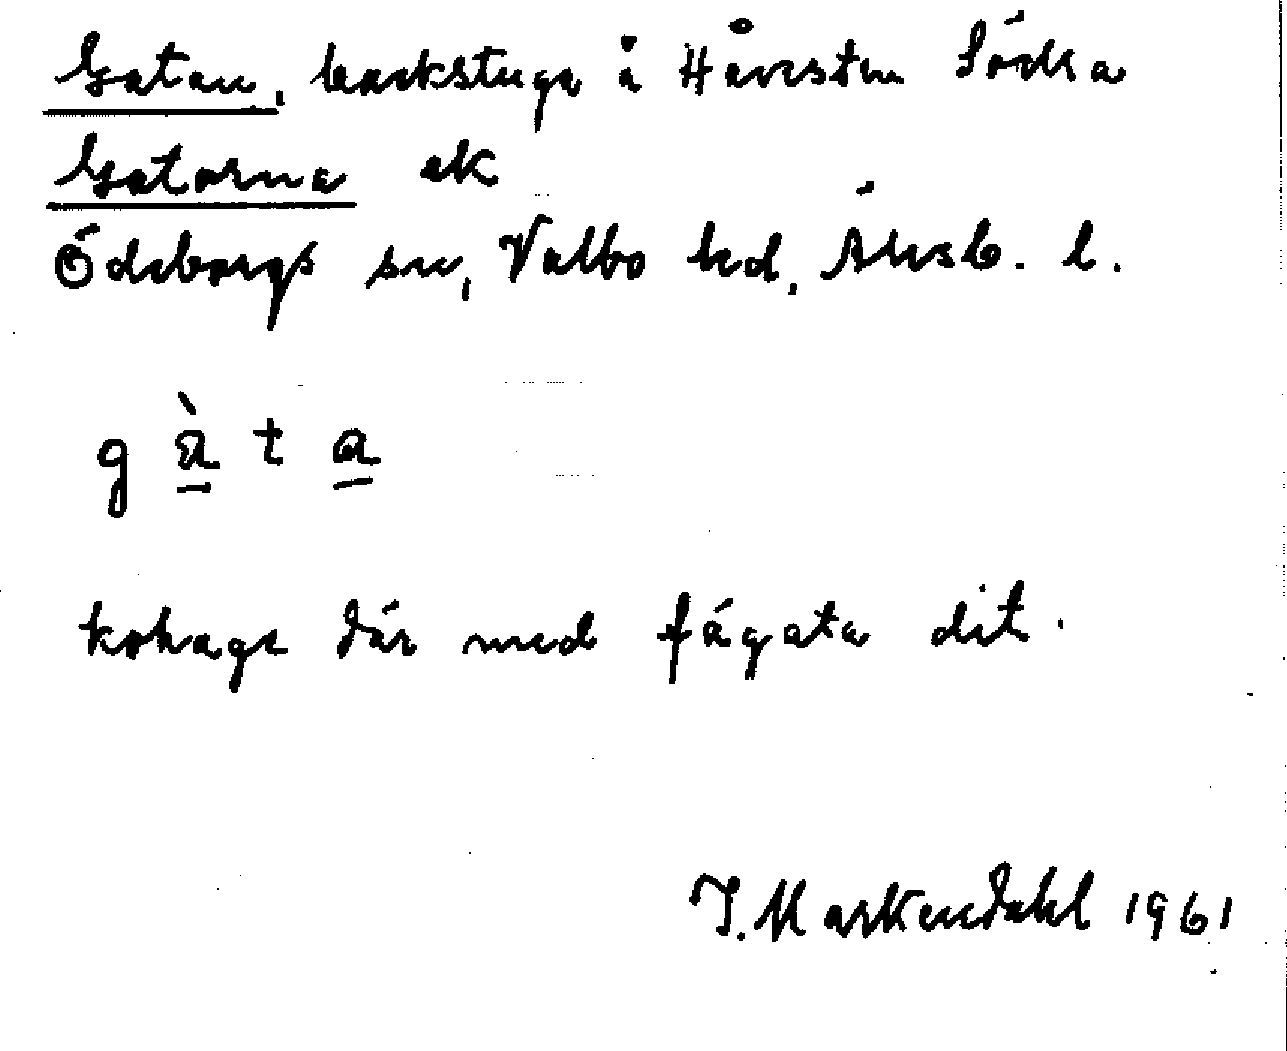 Gatan, backstuga å Håvesten Södra
Gatorna ek
Ödeborgs sn, Valbo hd, Älvsb. l.
g à t a
kohage där med fägata dit.
J. Markendahl 1961